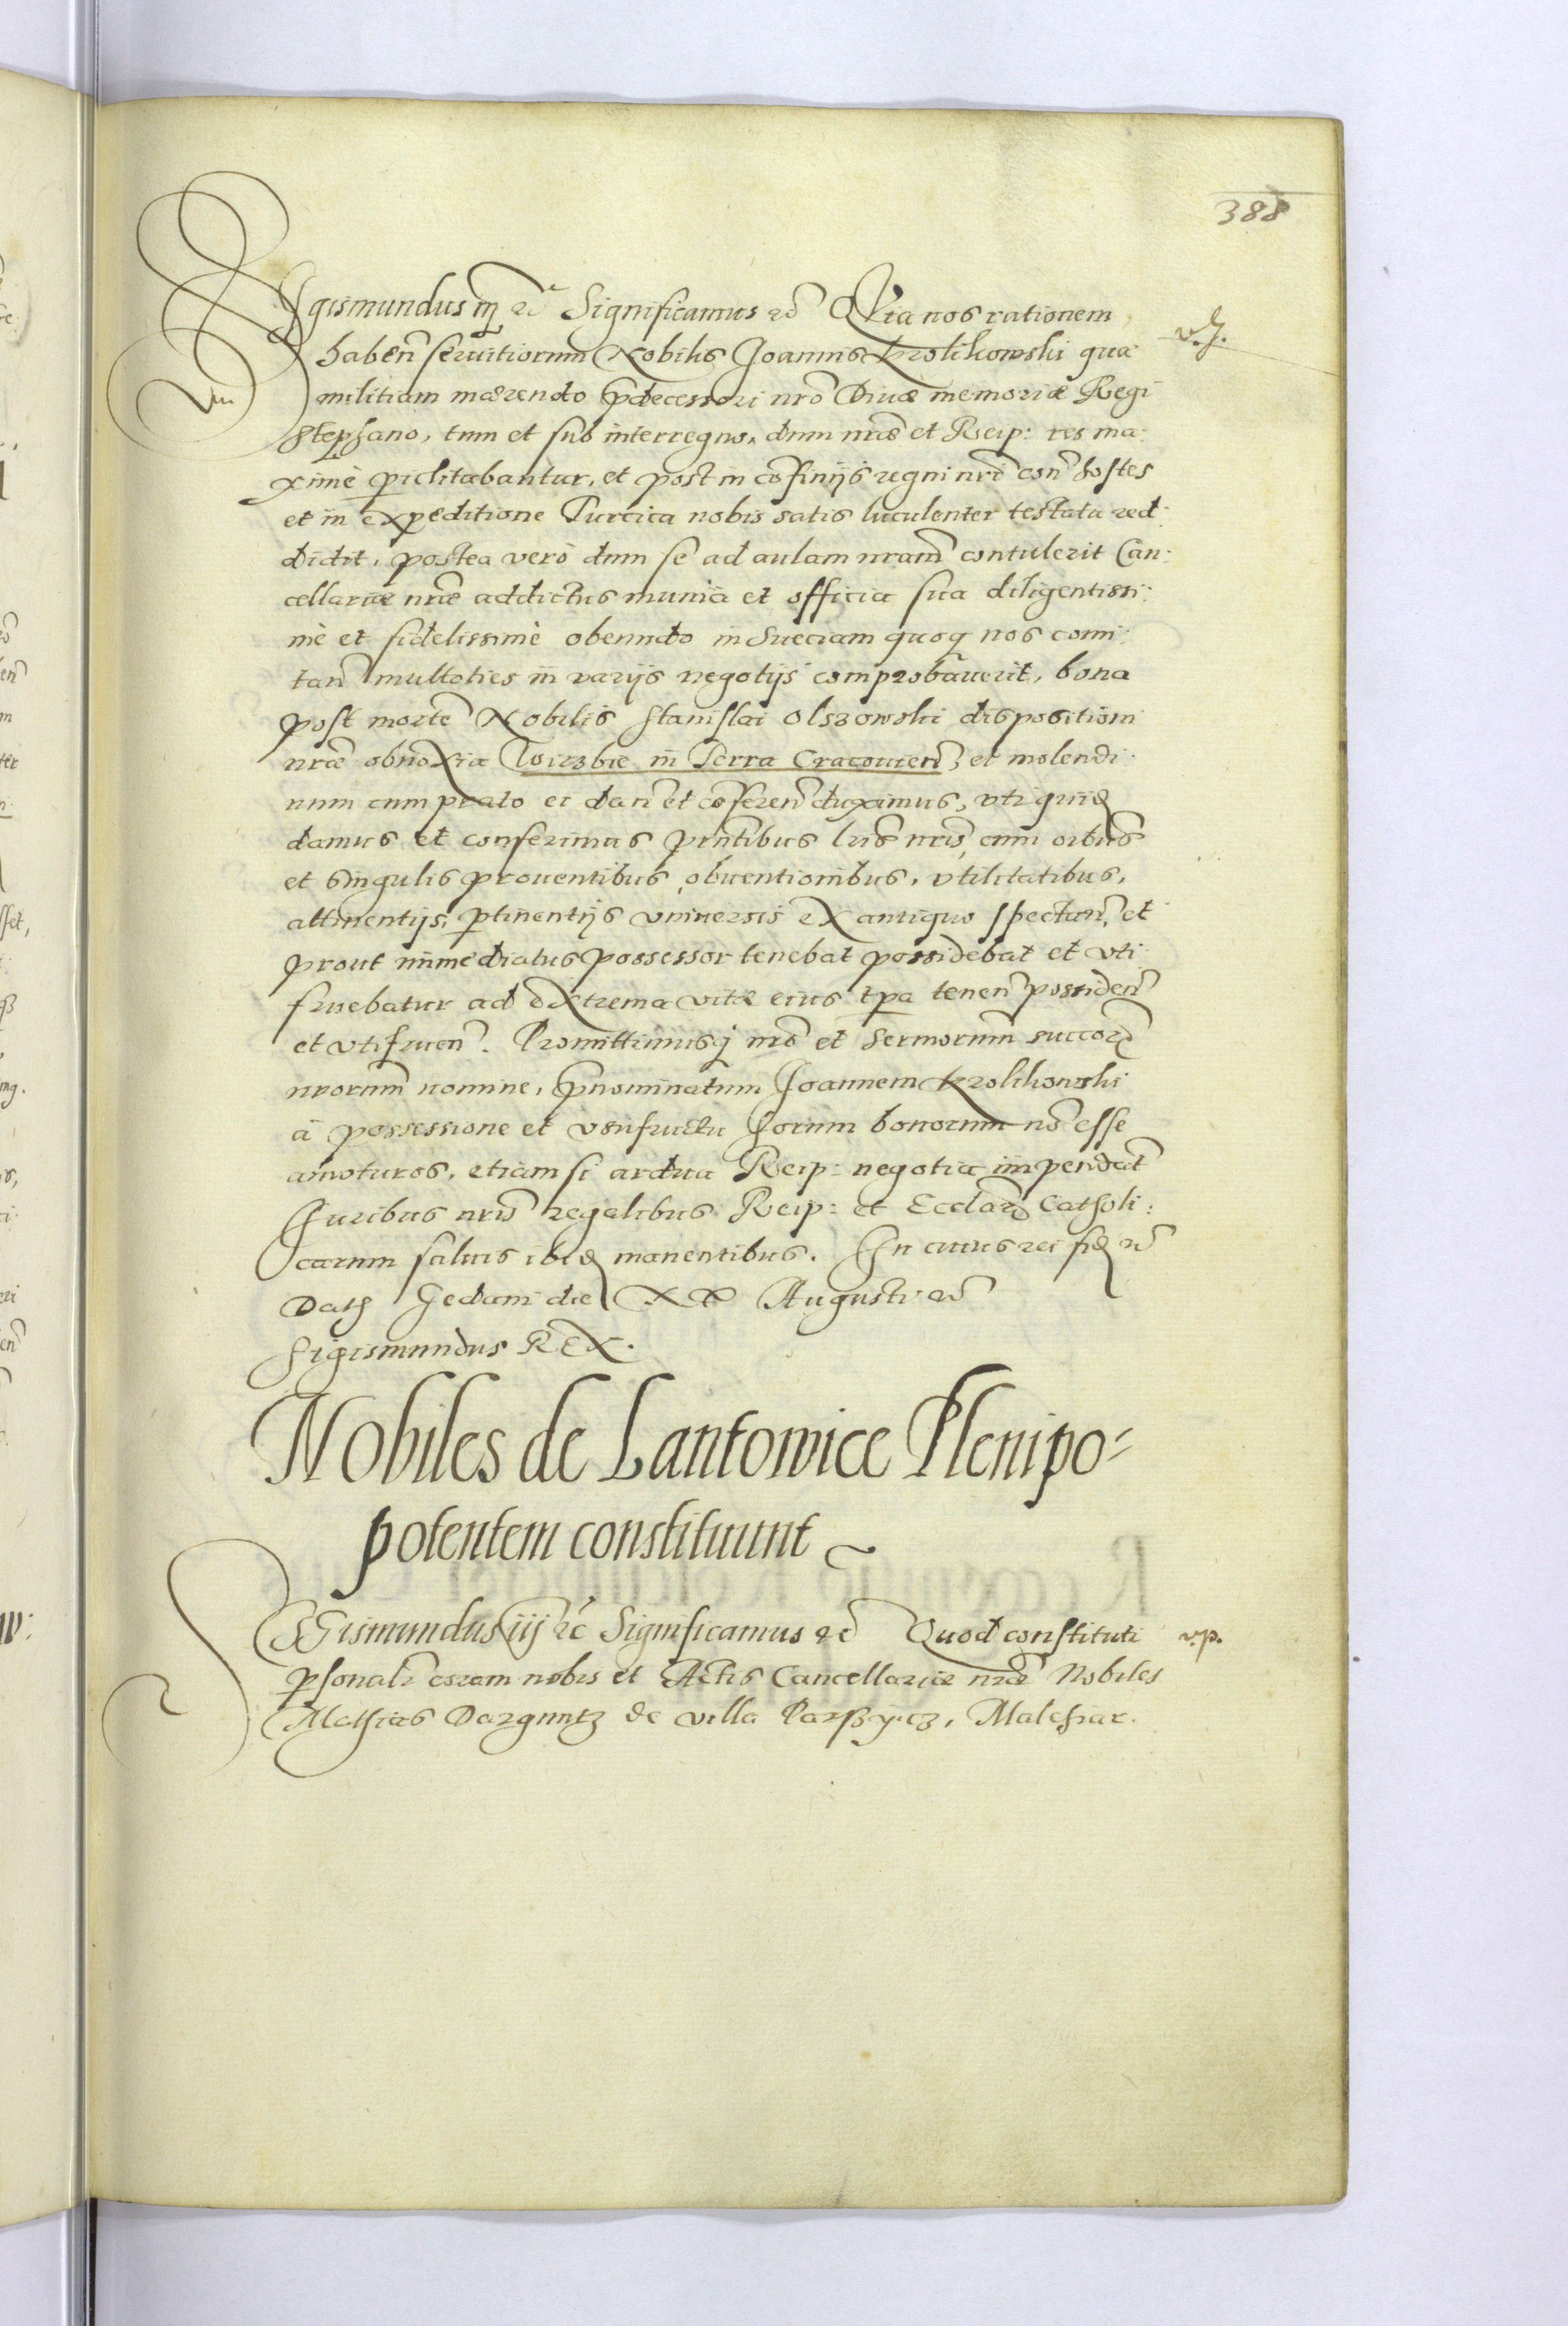 388
Sigismundus iij etc Significamus etc Quia nos rationem
v. J.
haben̄ seruitiorum Nobilis Joannis Krolikowski quæ
militiam mærendo p̄decessori nr̄o Diuæ memoriæ Regi
Stephano, tum et sub interregno, dum nr̄æ et Reip: res ma:
ximè periclitabantur, et post in cōfinijs regni nr̄i con̄ hostes
et in expeditione Turcica nobis satis luculenter testata red:
didit, postea verò dum se ad aulam nr̄am contulerit Can:
cellariæ nr̄æ addictus munia et officia sua diligentissi:
mè et fidelissimè obeundo in Sueciam quoq nos comi:
tan̄ multoties in varijs negotijs comprobauerit, bona
post mortē Nobilis Stanislai Olszowski dispositioni
nr̄æ obnoxia Wirzbie in Terra Cracouien̄, et molendi:
num cum prato ei dan̄ et cōferen̄ duximus, vti quidē
damus et conferimus pn̄tibus lr̄is nr̄is, cum oibus
et singulis prouentibus, obuentionibus, vtilitatibus,
attinentijs, ptinentijs vniuersis ex antiquo spectan̄, et
prout immediatus possessor tenebat possidebat et vti
fruebatur ad extrema vitæ eius tp̄a tenen̄ possiden̄
et vtifruen̄. Promittimusq nr̄o et Sermorum succor̄
nrorum nomine, p̄nominatum Joannem Krolikowski
à possessione et vsufructu horum bonorum nō esse
amoturos, etiam si ardua Reip: negotia impendāt
Juribus nr̄is regalibus Reip: et Ecclar̄ Catholi:
carum saluis ibidē manentibus. In cuius rei fidē etc
Dat Gedani die XX Augusti etc
Sigismundus REX.
Nobiles de Lantowice Plenipo=
potentem constituunt
SGismundus iij etc Significamus etc Quod constituti
v. p.
psonalr̄ coram nobis et Actis Cancellariæ nr̄æ Nobiles
Mathias Darguntz de villa Parßycz, Malchiar.